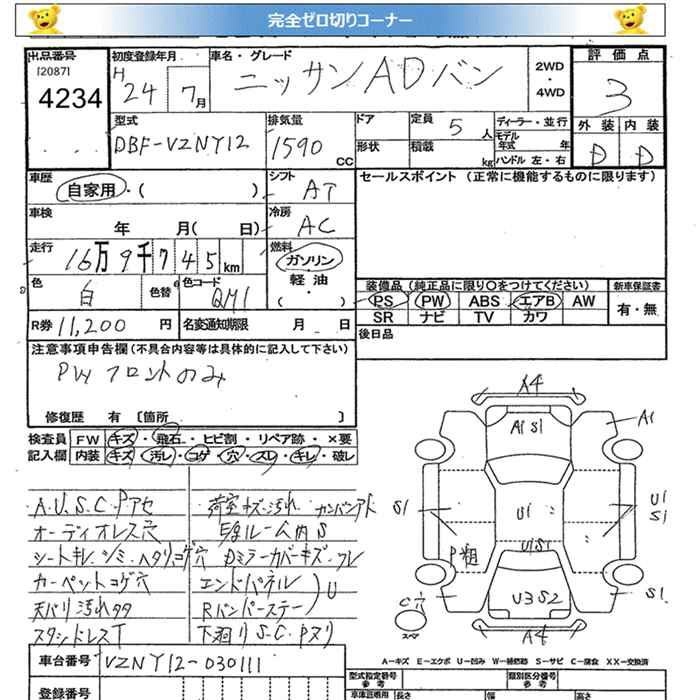 完全ゼロ切りコーナー
出品番号 初度登録年月 車名・グレード 評価点
[2087] H 2WD
4234 24 7月 ニッサンADバン ・4WD 3
型式 排気量 ドア 定員 5人 ディーラー・並行 外装 内装
DBF-VZNY12 1590 CC 形状 積載 kg モデル年式 年 ハンドル 左・右 D D
車歴 シフト セールスポイント (正常に機能するものに限ります)
自家用・( ) AT
車検 冷房
年 月( 日) AC
走行 燃料
16万9千745km ガソリン
色 色替 色コード 軽油
白 QM1 ( )
装備品(純正品に限り○をつけてください) 新車保証書
PS PW ABS エアB AW 有・無
SR ナビ TV カワ
R券 11,200 円 名変通知期限 月 日
後日品
注意事項申告欄(不具合内容等は具体的に記入して下さい)
PWフロントのみ
修復歴 有 [箇所 ]
検査員 FW キズ・飛石・ヒビ割・リペア跡・×要
記入欄 内装 キズ・汚レ・コゲ・穴・スレ・キレ・破レ
A.U.S.C.Pアセ
オーディオレス穴
シートキレ.シミ.ヘタリ.コゲ穴
カーペットコゲ穴
天バリ汚レタタ
スタンドレスT
荷室キズ.汚れ カンバンアト
E/gルーム内S
Dミラーカバーキズ.ワレ
エンドパネル
Rバンパーステー U
下廻りS.C.Pヌリ
A4
A1 S1
A1
S1
U1
U1
S1
U1S1
P粗
S1
C穴
スペア
U3 S2
A4
A-キズ E-エクボ U-凹み W-補修跡 S-サビ C-腐食 XX-交換済
車台番号 VZNY12-030111
型式指定番号 参考 類別区分番号 参考
登録番号 車庫証明用 長さ 幅 高さ